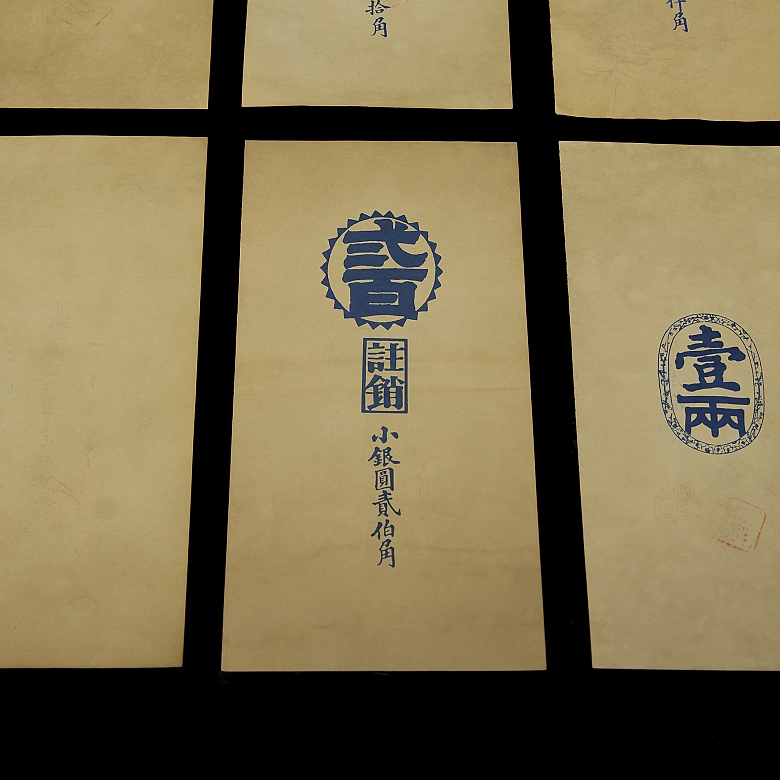 拾角
角
弍百
註銷
小銀圓貳伯角
壹兩